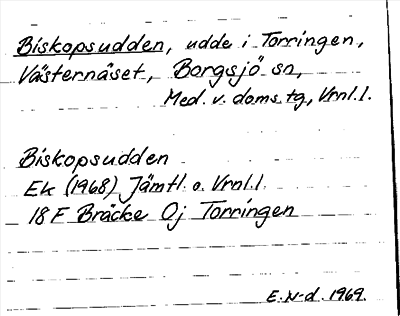 Biskopsudden, udde i Torringen,
Västernäset, Borgsjö sn,
Med. v. doms. tg, Vrnl.l.
Biskopsudden
Ek (1968) Jämtl. o. Vrnl.l.
18 F Bräcke Oj Torringen
E.N-d. 1969.